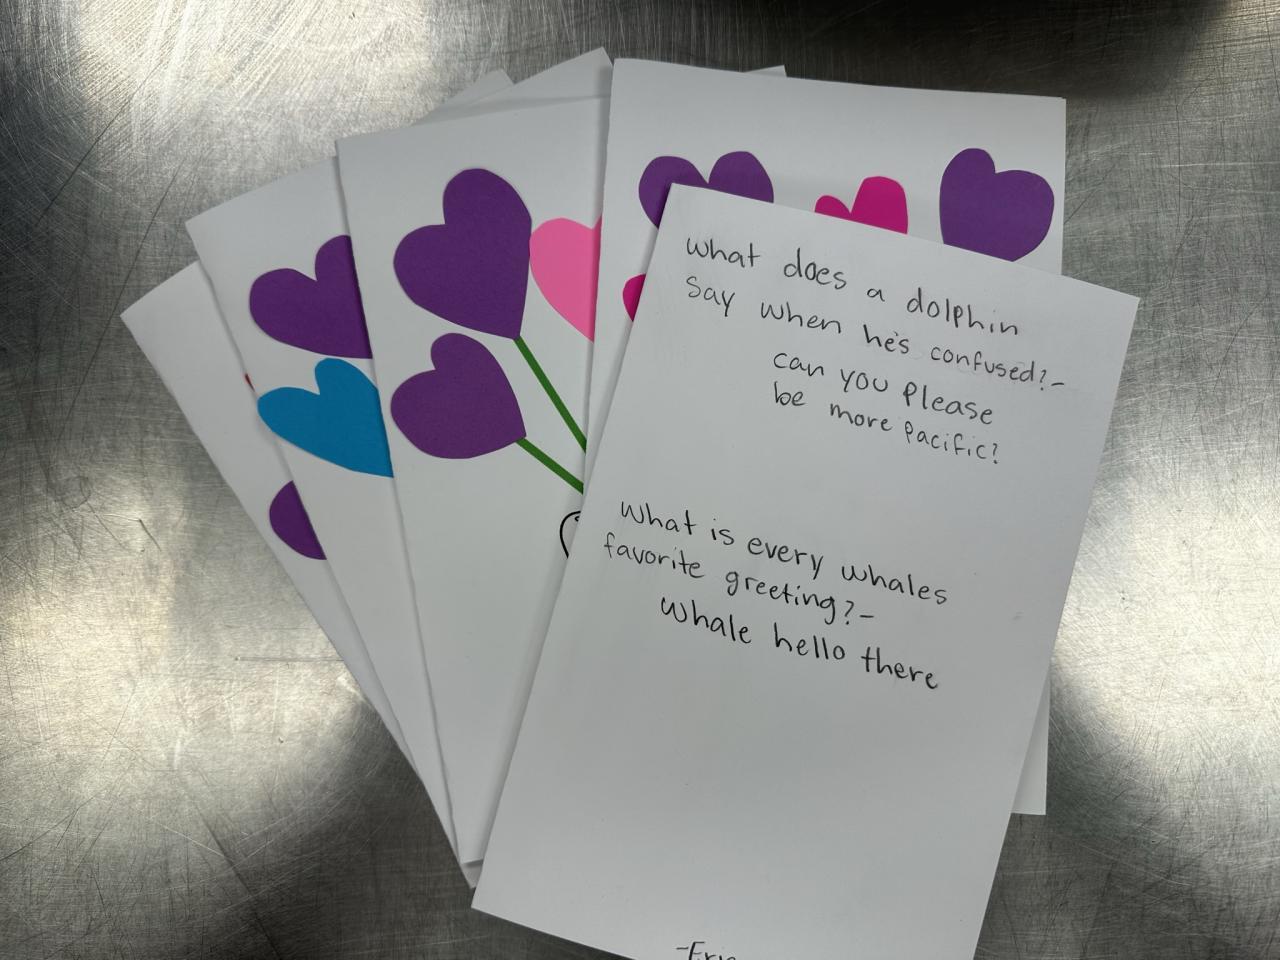 what does a dolphin
say when he's confused?-
can you please
be more pacific?
What is every whales
favorite greeting?-
Whale hello there